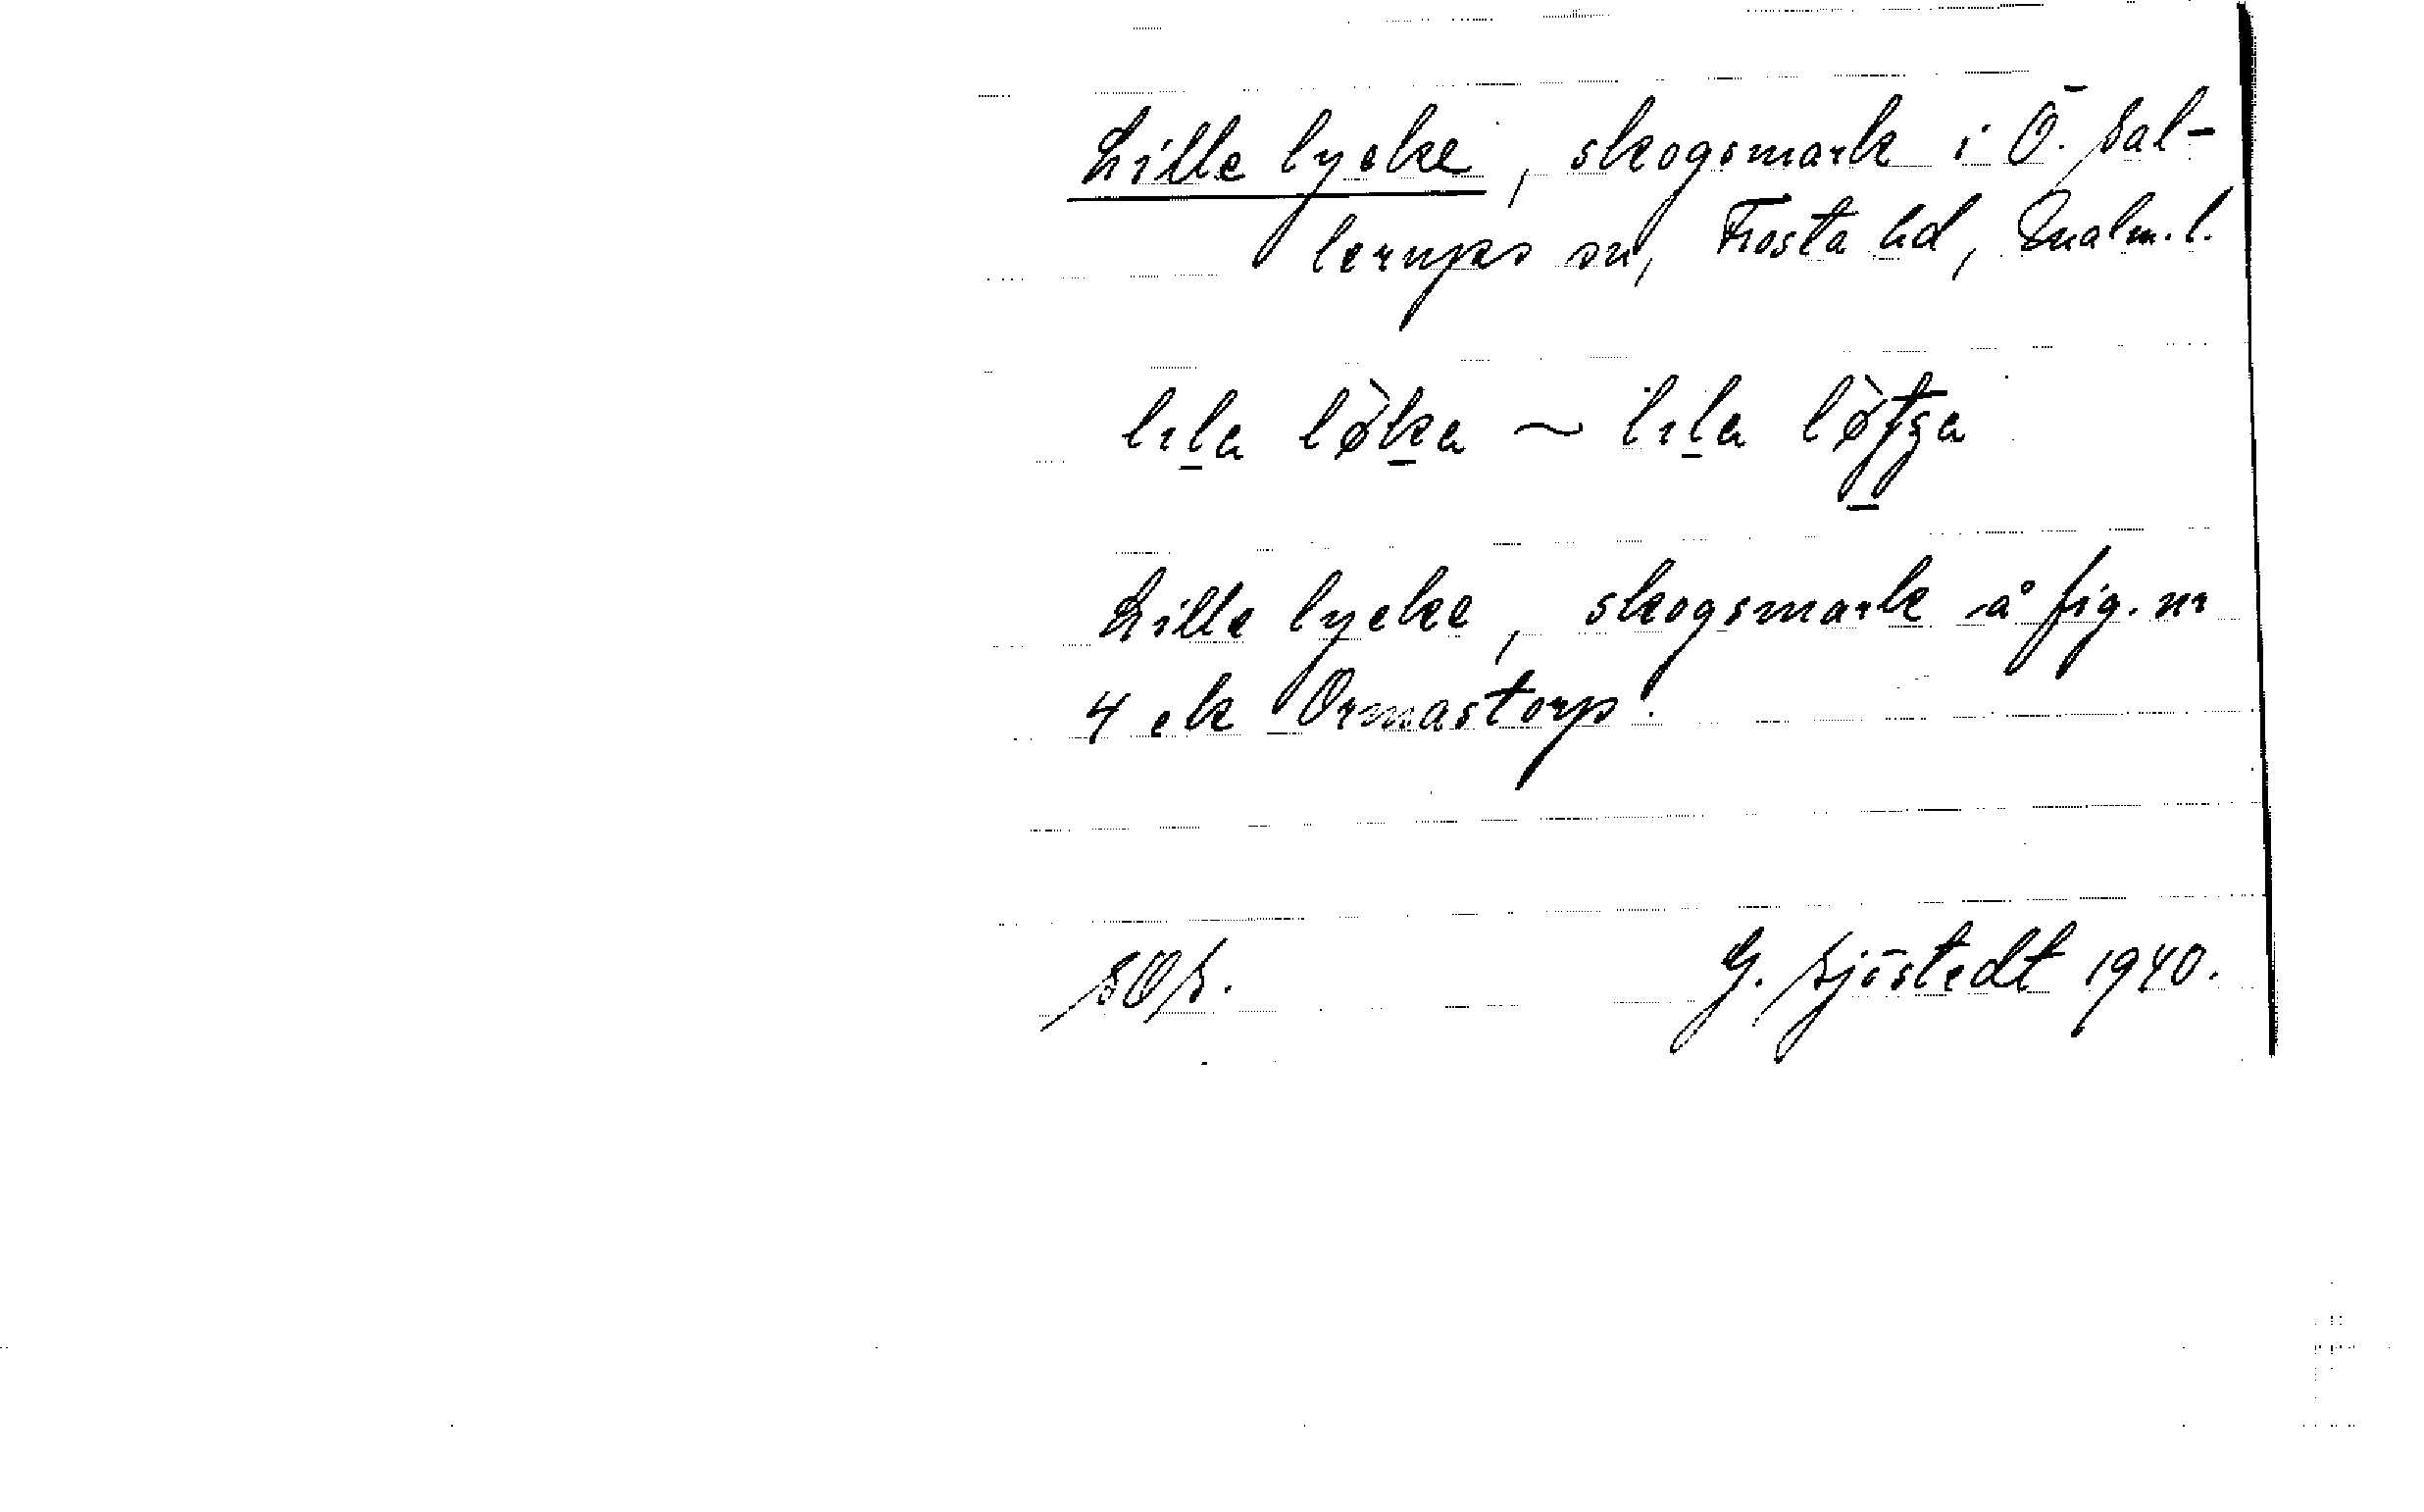 Lille lycke, skogsmark i Ö. Sal-
lerups sn, Frosta hd, Malm. l.
lıla lø̀ka ~ lıla lø̀tʃa
Lille lycke, skogsmark å fig. nr
4 ek Ormastorp.
SOS. G. Sjöstedt 1940.